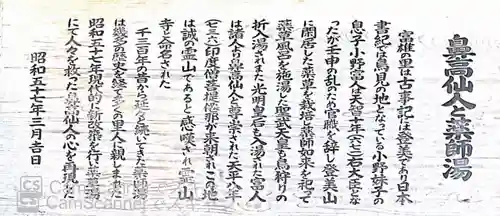 鼻高仙人と薬師湯
富雄の里は古事記には登美であり日本
書紀では鳥見の地となっている小野妹子の
息子小野富人は天智十年八で右大臣とな
ったが壬申の乱のため官職を辞し登美山
に閑居した薬草を栽培し薬師如来を祀って
薬草風呂を施湯し聖武天皇も鳥狩りの
折入湯されまた光明皇后も入湯され富人
は諸人より鼻高仙人と尊崇された天平八年
(七三六)印度僧菩提僊那が来朝されこの地
は誠の霊山であると感嘆され霊山
寺と命名された
千三百年の昔から延々と続いてきた薬師湯
は幾多の歴史を経て多くの里人に親しまれた
昭和五十七年現代的な新改築を行い薬草
にて人々を救った鼻高仙人の心を再現
昭和五十七年三月吉日
CS CamScanner